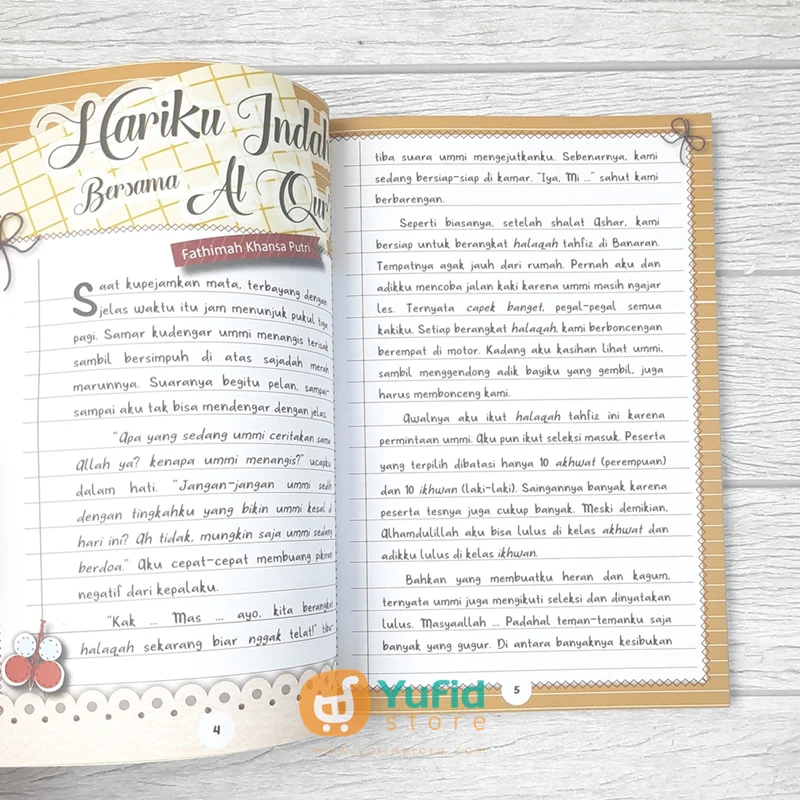 Hariku Indah
Bersama Al Qur'
Fathimah Khansa Putri
Saat kupejamkan mata, terbayang dengan
jelas waktu itu jam menunjuk pukul tiga
pagi. Samar kudengar ummi menangis terisak
sambil bersimpuh di atas sajadah merah
marunnya. Suaranya begitu pelan, sampai-
sampai aku tak bisa mendengar dengan jelas.
"Apa yang sedang ummi ceritakan sama
Allah ya? kenapa ummi menangis?" ucapku
dalam hati. "Jangan-jangan ummi sedih
dengan tingkahku yang bikin ummi kesal di
hari ini? Ah tidak, mungkin saja ummi sedang
berdoa." Aku cepat-cepat membuang pikiran
negatif dari kepalaku.
"Kak ... Mas ... ayo, kita berangkat
halaqah sekarang biar nggak telat!" tiba-
4
tiba suara ummi mengejutkanku. Sebenarnya, kami
sedang bersiap-siap di kamar. "Iya, Mi ..." sahut kami
berbarengan.
Seperti biasanya, setelah shalat Ashar, kami
bersiap untuk berangkat halaqah tahfiz di Banaran.
Tempatnya agak jauh dari rumah. Pernah aku dan
adikku mencoba jalan kaki karena ummi masih ngajar
les. Ternyata capek banget, pegal-pegal semua
kakiku. Setiap berangkat halaqah, kami berboncengan
berempat di motor. Kadang aku kasihan lihat ummi,
sambil menggendong adik bayiku yang gembil, juga
harus membonceng kami.
Awalnya aku ikut halaqah tahfiz ini karena
permintaan ummi. Aku pun ikut seleksi masuk. Peserta
yang terpilih dibatasi hanya 10 akhwat (perempuan)
dan 10 ikhwan (laki-laki). Saingannya banyak karena
peserta tesnya juga cukup banyak. Meski demikian,
Alhamdulillah aku bisa lulus di kelas akhwat dan
adikku lulus di kelas ikhwan.
Bahkan yang membuatku heran dan kagum,
ternyata ummi juga mengikuti seleksi dan dinyatakan
lulus. Masyaallah ... Padahal teman-temanku saja
banyak yang gugur. Di antara banyaknya kesibukan
5
Yufid
store
www.yufidstore.com